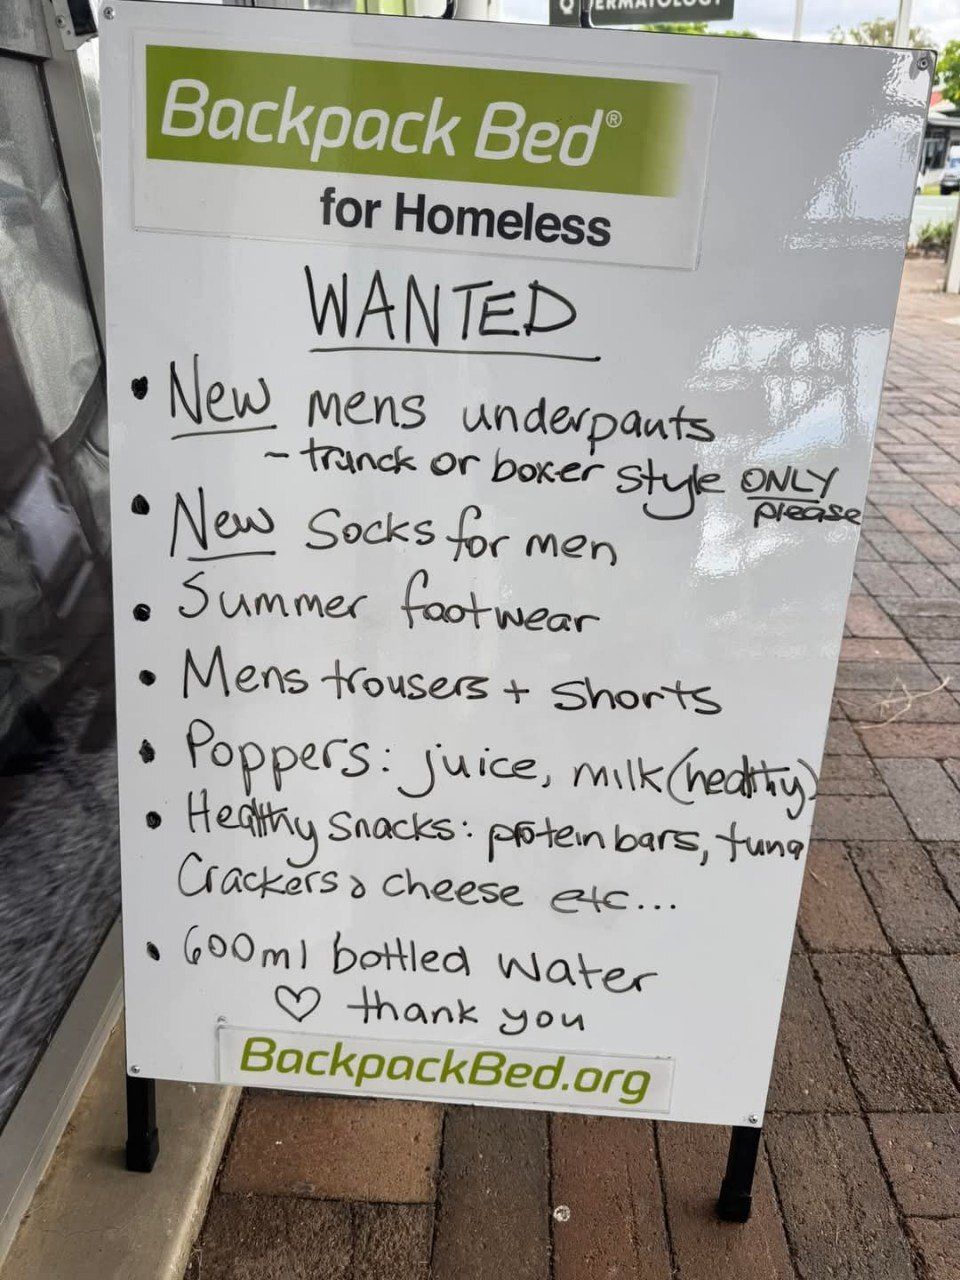 DERMATOLOGY
Backpack Bed®
for Homeless
WANTED
• New mens underpants
- trunck or boxer style ONLY
please
• New Socks for men
• Summer footwear
• Mens trousers + shorts
• Poppers: juice, milk (healthy)
• Healthy snacks: protein bars, tuna
Crackers & cheese etc...
• 600ml bottled water
♡ thank you
BackpackBed.org